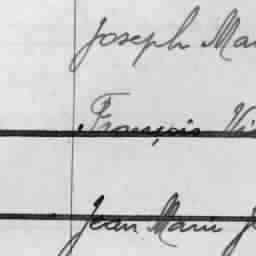 Joseph Mar
François Vi
Jean Marie J